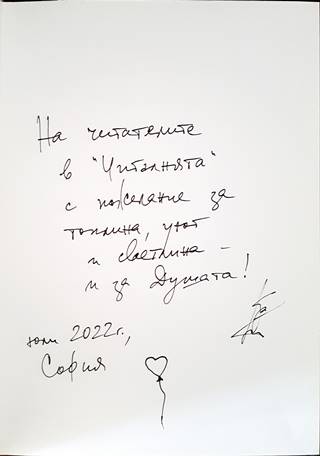 На читателите
в "Читалнята"
с пожелание за
топлина, уют
и светлина -
и за Душата!
юли 2022г.,
София